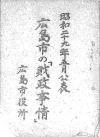 昭和二十九年五月公表
広島市の「財政事情」
広島市役所